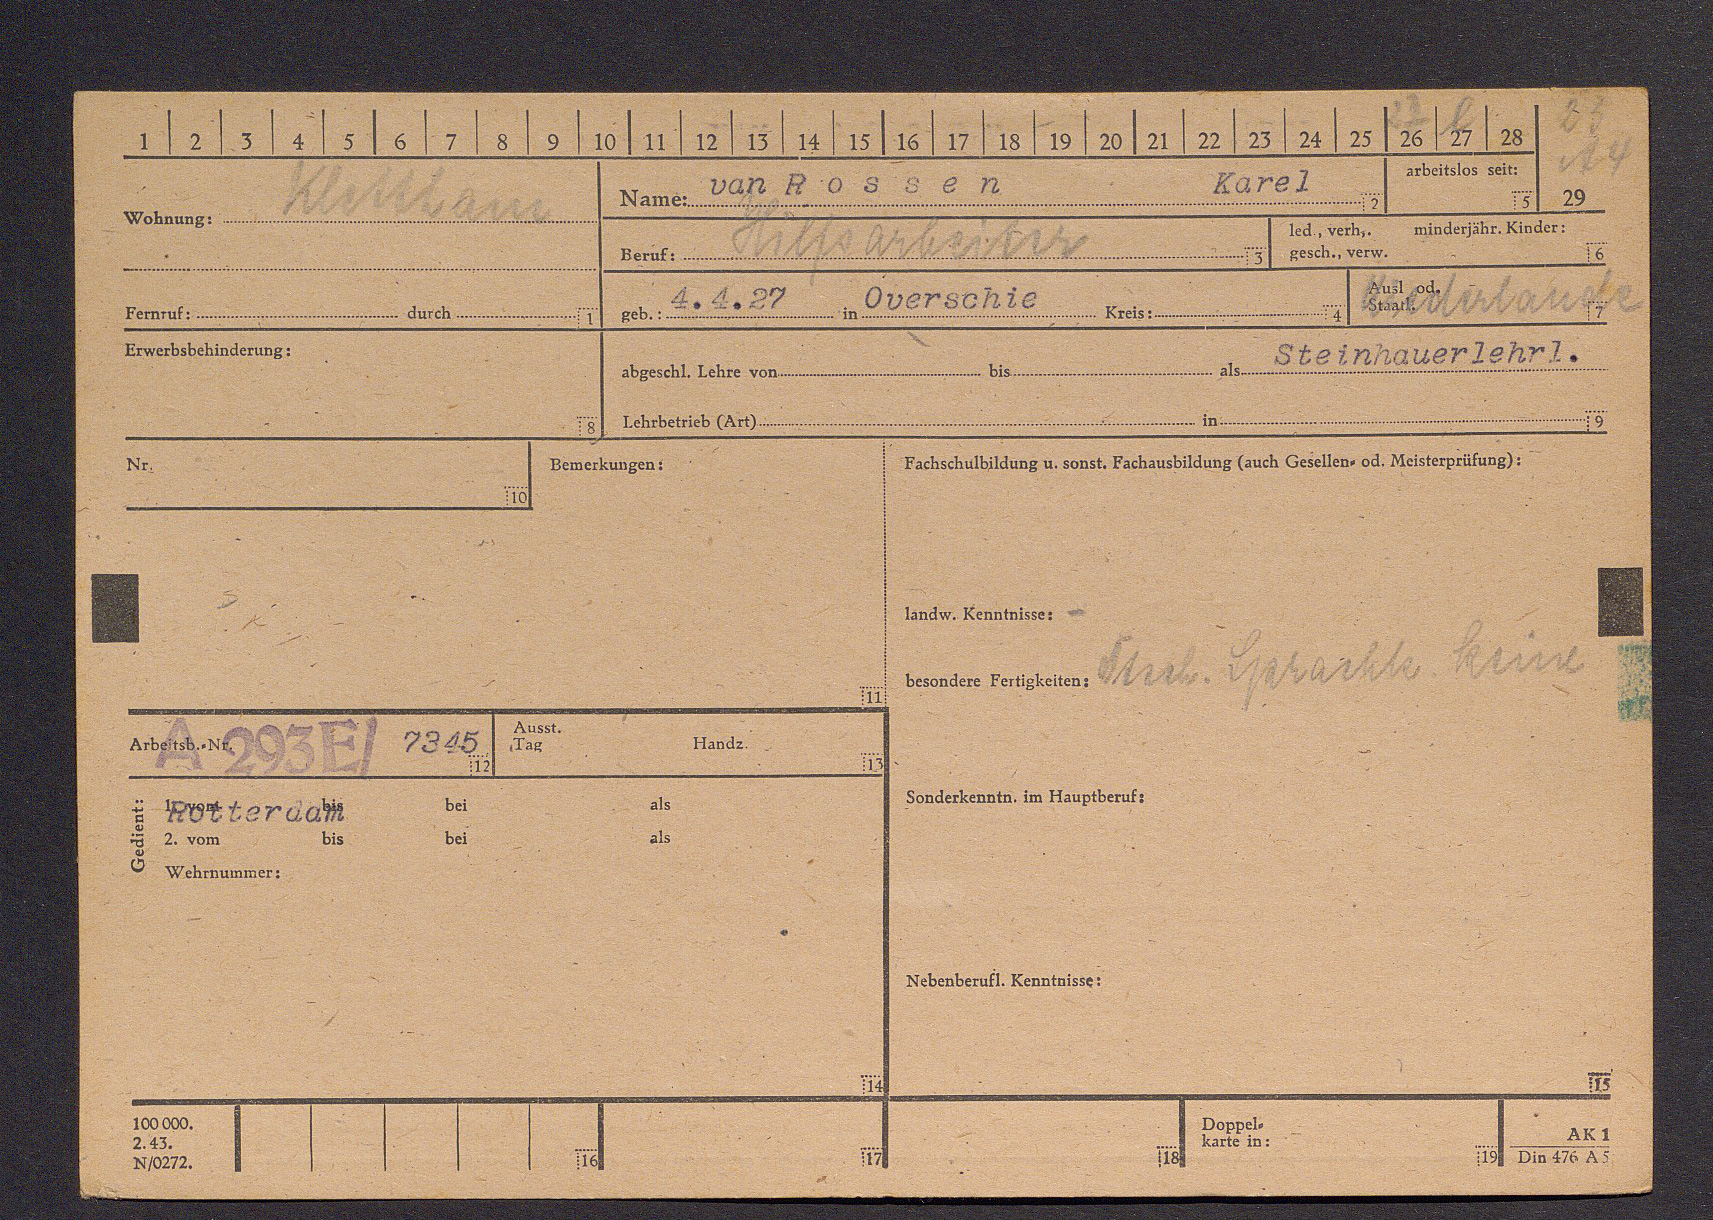 1 2 3 4 5 6 7 8 9 10 11 12 13 14 15 16 17 18 19 20 21 22 23 24 25 26 27 28
arbeitslos seit: 5 29
Wohnung: Klettham
Name: van R o s s e n Karel 2
Beruf: Hilfsarbeiter 3
led., verh., gesch., verw. minderjähr. Kinder: 6
Fernruf: durch 1
geb.: 4.4.27 in Overschie Kreis: 4
Ausl. od. Staatl. Niederlande 7
Erwerbsbehinderung: 8
abgeschl. Lehre von bis als Steinhauerlehrl.
Lehrbetrieb (Art) in 9
Nr. 10
Bemerkungen: 11
Fachschulbildung u. sonst. Fachausbildung (auch Gesellen- od. Meisterprüfung):
landw. Kenntnisse: -
besondere Fertigkeiten: Dtsch. Sprachk. keine
Arbeitsb.-Nr. A 293E/ 7345 12
Ausst. Tag Handz. 13
Sonderkenntn. im Hauptberuf:
Gedient:
1. vom bis bei als
Rotterdam
2. vom bis bei als
Wehrnummer:
14
Nebenberufl. Kenntnisse:
15
100 000.
2. 43.
N/0272.
16 17 18
Doppel-
karte in: 19
AK 1
Din 476 A 5